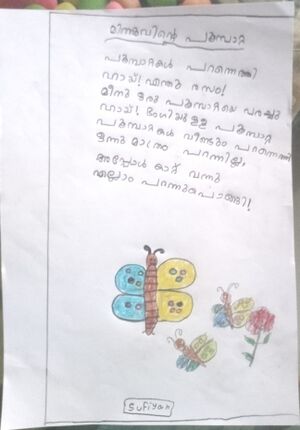 മിന്നുവിന്റെ പൂമ്പാറ്റ
പൂമ്പാറ്റകൾ പറന്നെത്തി
ഹായ്! എന്തു രസം!
മീനു ഒരു പൂമ്പാറ്റയെ വരച്ചു
ഹായ്! ഭംഗിയുള്ള പൂമ്പാറ്റ
പൂമ്പാറ്റകൾ വീണ്ടും പറന്നെത്തി
ഒന്നു മാത്രം പറന്നില്ല,
അപ്പോൾ കാറ്റ് വന്നു
എല്ലാം പറന്നുപൊങ്ങി!
Sufiyan